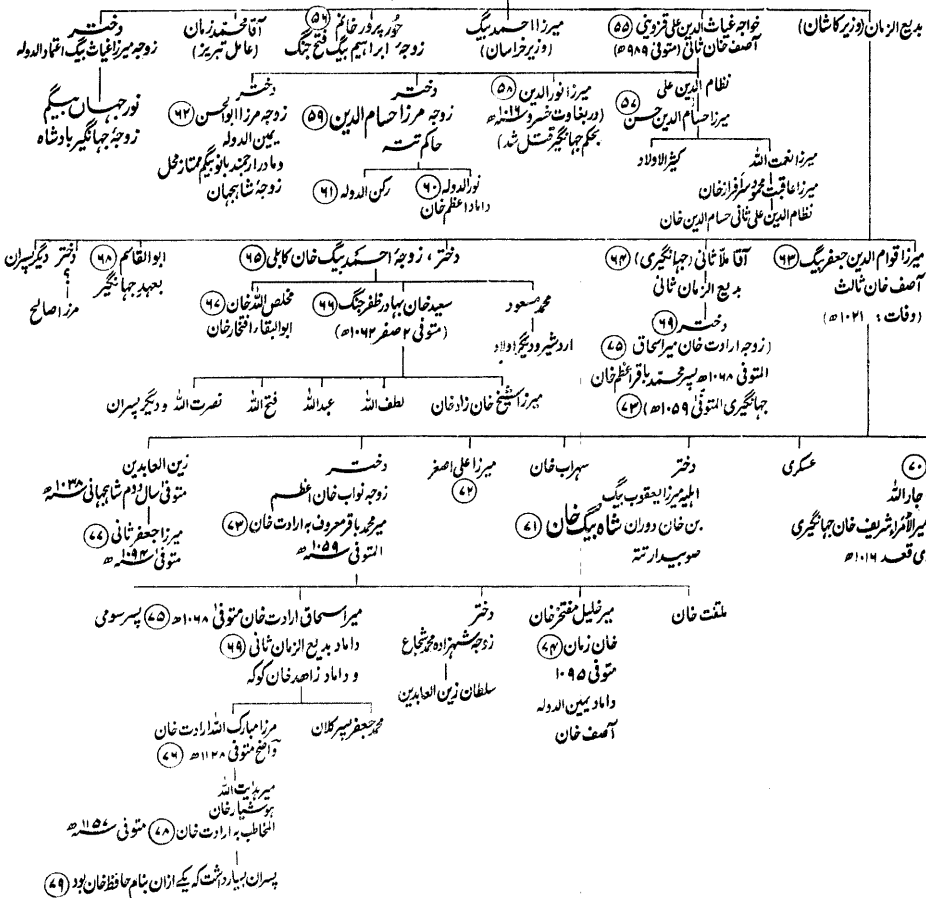 بدیع الزمان (وزیر کاشان)
خواجہ غیاث الدین علی قزوینی (۵۵)
آصف خان ثانی (متوفی ۹۸۹ھ)
میرزا احمد بیگ
(وزیر خراسان)
حور پرور خانم (۵۶)
زوجۂ ابراہیم بیگ فتح جنگ
آقا محمد زمان
(عامل تبریز)
دختر
زوجہ میرزا غیاث بیگ اعتماد الدولہ
نور جہاں بیگم
زوجۂ جہانگیر بادشاہ
نظام الدین علی
(۵۷)
میرزا حسام الدین حسن
میرزا نور الدین (۵۸)
(در بغاوت خسرو ۱۰۱۶ھ
بحکم جہانگیر قتل شد)
دختر
زوجہ مرزا حسام الدین (۵۹)
حاکم تتہ
دختر
زوجہ مرزا ابو الحسن (۶۲)
یمین الدولہ
و مادر ارجمند بانو بیگم ممتاز محل
زوجۂ شاہجہان
میرزا نعمت اللہ
میرزا عاقبت محمود سرفراز خان
نظام الدین علی ثانی حسام الدین خان
کثیر الاولاد
نور الدولہ (۶۰)
داماد اعظم خان
رکن الدولہ (۶۱)
میرزا قوام الدین جعفر بیگ (۶۳)
آصف خان ثالث
(وفات: ۱۰۲۱ھ)
آقا ملا ثانی (جہانگیری) (۶۴)
بدیع الزمان ثانی
دختر (۶۹)
(زوجہ ارادت خان میر اسحاق (۷۵)
المتوفی ۱۰۶۸ھ پسر محمد باقر اعظم خان
جہانگیری المتوفیٰ ۱۰۵۹ھ) (۷۳)
دختر، زوجۂ احمد بیگ خان کابلی (۶۵)
ابو القاسم (۶۸)
بعہد جہانگیر
دختر
؟
مرزا صالح
دیگر پسران
محمد مسعود
اردشیر و دیگر اولاد
سعید خان بہادر ظفر جنگ (۶۶)
(متوفی ۲ صفر ۱۰۶۲ھ)
مخلص اللہ خان (۶۷)
ابو البقاء افتخار خان
میرزا شیخ خان زاد خان
لطف اللہ
عبد اللہ
فتح اللہ
نصرت اللہ و دیگر پسران
(۷۰)
جار اللہ
میر الامراء شریف خان جہانگیری
ی قعد ۱۰۱۶ھ
عسکری
دختر
اہلیہ میرزا یعقوب بیگ
بن خان دوران شاہ بیگ خان (۷۱)
صوبیدار تتہ
سہراب خان
میرزا علی اصغر
(۷۲)
دختر
زوجہ نواب خان اعظم
میر محمد باقر معروف بہ ارادت خان (۷۳)
المتوفی ۱۰۵۹ھ
زین العابدین
متوفی سال دوم شاہجہانی ۱۰۳۸ھ
میرزا جعفر ثانی (۷۷)
متوفی ۱۰۹۴ھ
ملتفت خان
میر خلیل مفتخر خان
خان زمان (۷۴)
متوفی ۱۰۹۵
داماد یمین الدولہ
آصف خان
دختر
زوجہ شہزادہ محمد شجاع
سلطان زین العابدین
میر اسحاق ارادت خان متوفیٰ ۱۰۶۸ھ (۷۵) پسر سومی
داماد بدیع الزمان ثانی (۶۹)
و داماد زاہد خان کوکہ
محمد جعفر پسر کلان
مرزا مبارک اللہ ارادت خان
واضح متوفی ۱۱۲۸ھ (۷۶)
میر ہدایت اللہ
ہوشیار خان
المخاطب بہ ارادت خان (۷۸) متوفی ۱۱۵۷ھ
پسران بسیار داشت کہ یکے ازان بنام حافظ خان بود (۷۹)